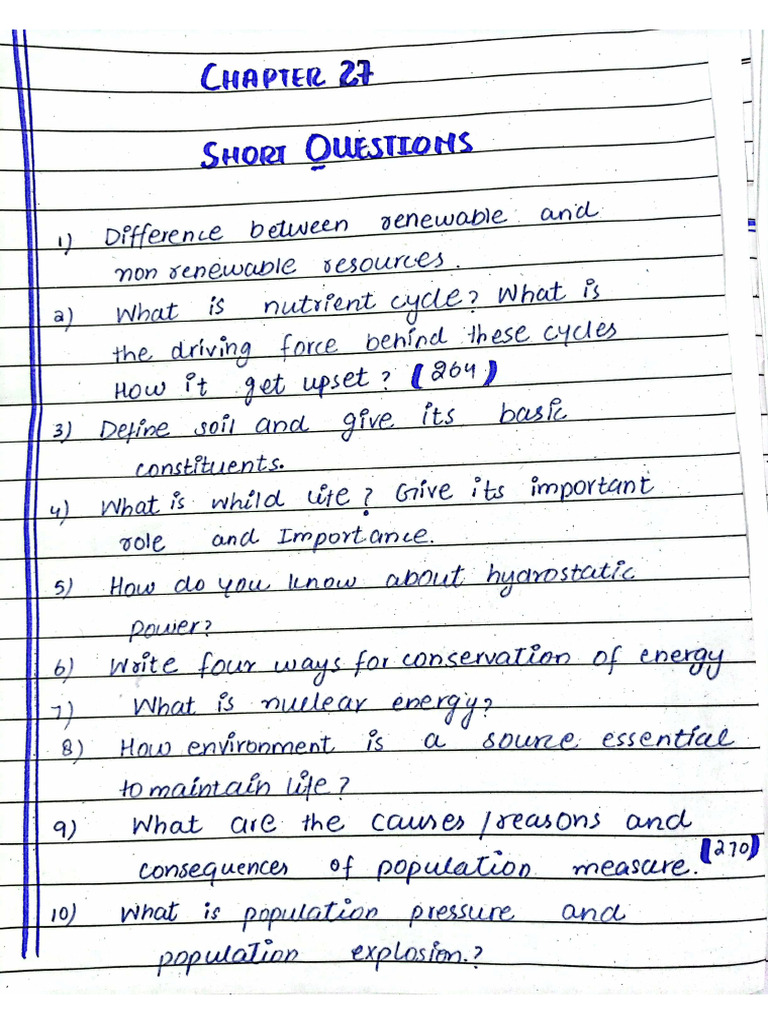 CHAPTER 27
SHORT QUESTIONS
1) Difference between renewable and
non renewable resources.
2) What is nutrient cycle? What is
the driving force behind these cycles
How it get upset? (264)
3) Define soil and give its basic
constituents.
4) What is whild life? Give its important
role and Importance.
5) How do you know about hydrostatic
power?
6) Write four ways for conservation of energy
7) What is nuclear energy?
8) How environment is a source essential
to maintain life?
9) What are the causes/reasons and
consequences of population measure. (270)
10) What is population pressure and
population explosion.?